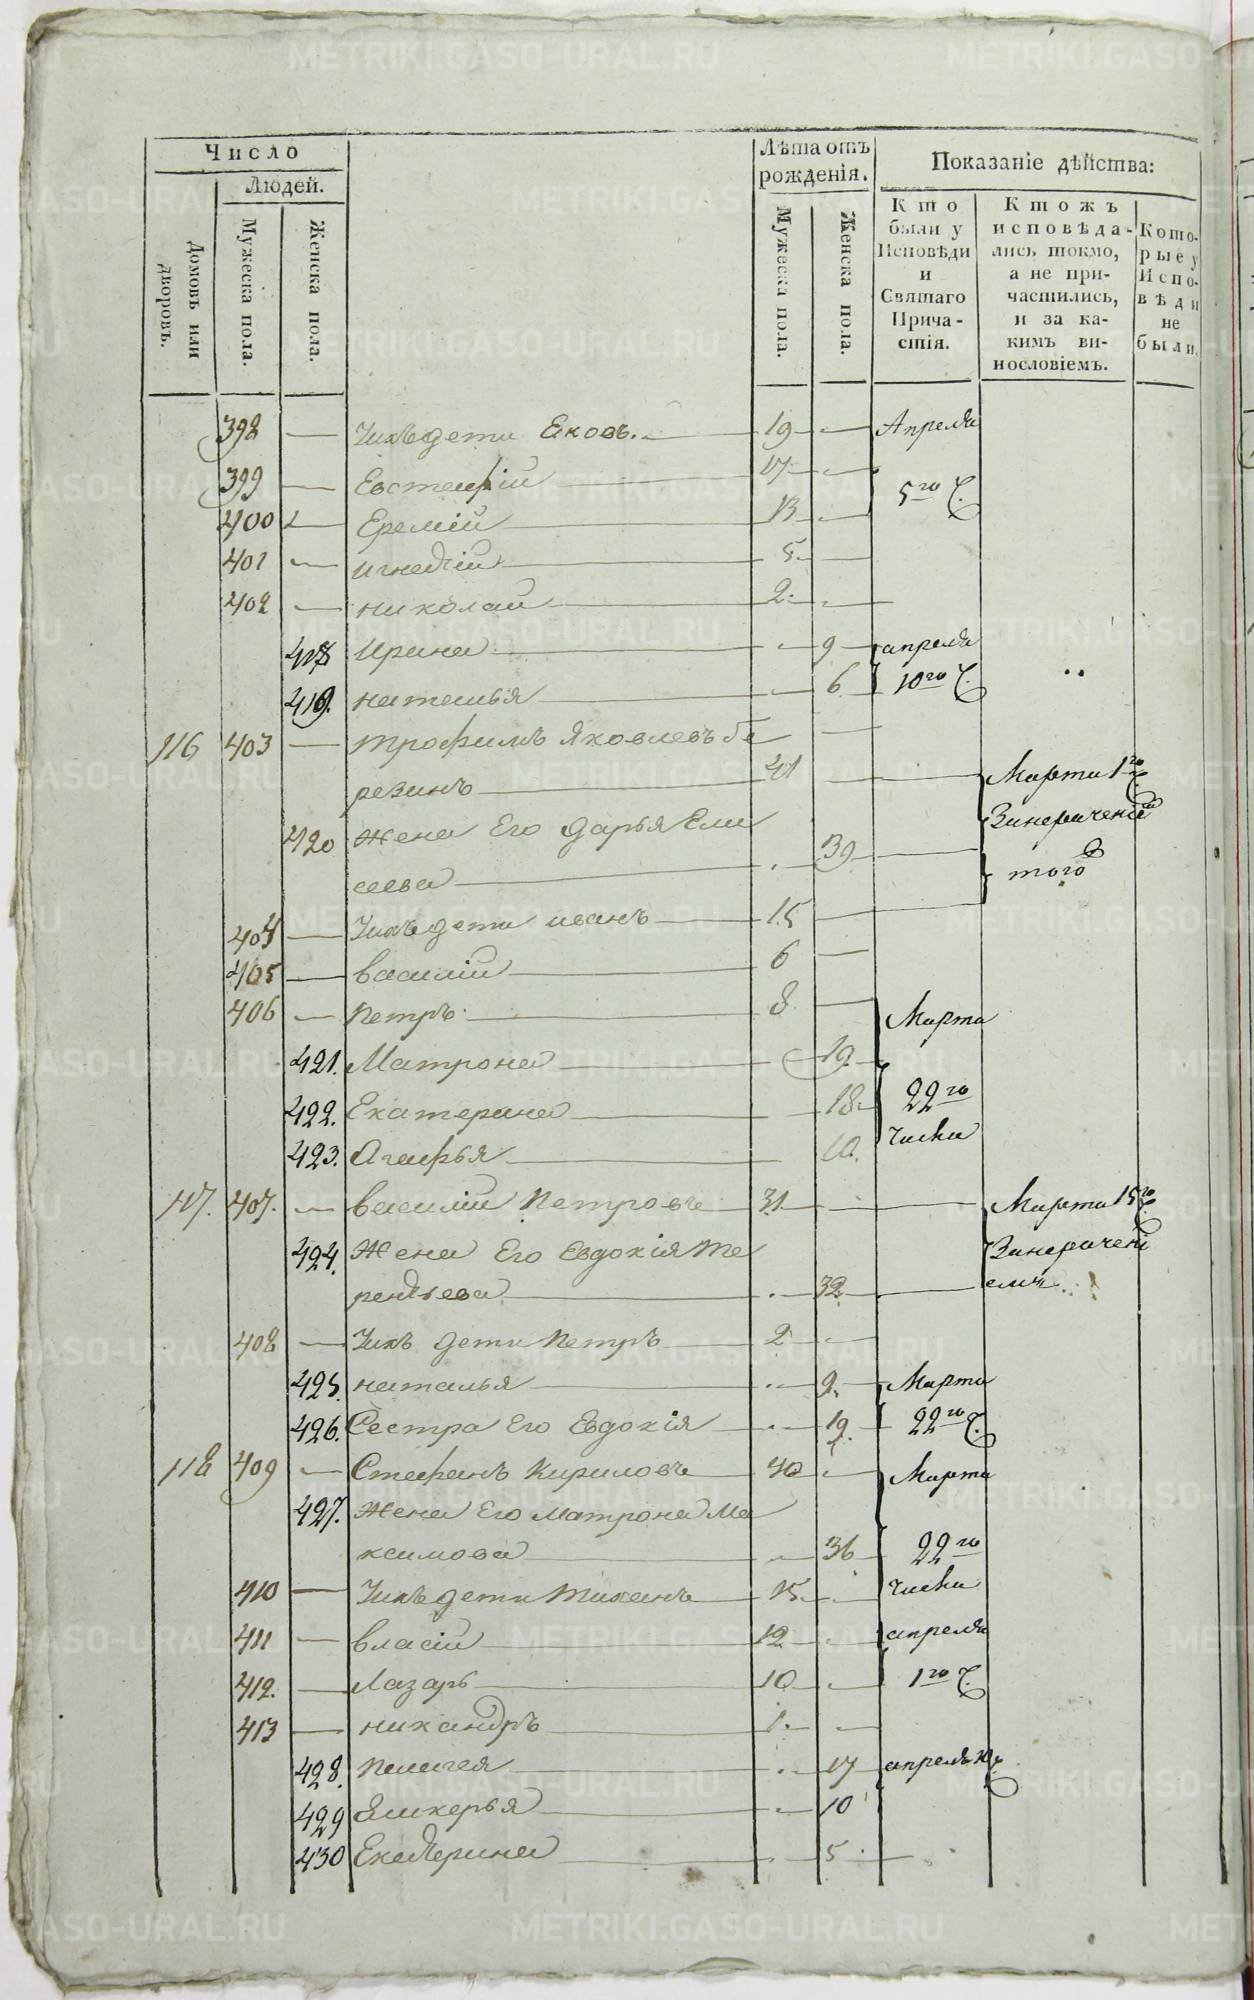 Число
Людей.
Домовъ или дворовъ.
Мужеска пола.
Женска пола.
Лѣта отъ рожденія.
Мужеска пола.
Женска пола.
Показаніе дѣйства:
Кто были у Исповѣди и Святаго Прича-стія.
Ктожъ исповѣда-лись токмо, а не при-частились, и за ка-кимъ ви-нословіемъ.
Кото-рые у Испо-вѣди не были.
398 — Ихъ дети Яковъ. — 19 — Апреля
399 — Евстафій — 17 —
5го Ч.
400 — Еремій — 13 —
401 — Игнатій — 5 —
402 — Николай — 2 —
418 Ирина — 9 — апреля
419. Наталья — 6 10го Ч.
116 403 — Трофимъ Яковлевъ Бе
резинъ — 41 — Марта 1го Ч.
420 Жена Его Дарья Ели
За нерачені
сеева — 39 — того
404 — Ихъ дети Иванъ — 15 —
405 — Василій — 6 —
406 — Петръ — 8 — Марта
421. Матрона — 19.
422. Екатерина — 18. 22го
423. Агафья — 10. Числа
117. 407. — Василій Петровъ 31. — Марта 15го Ч.
424. Жена Его Евдокія Те
За нерачені
рентьева — 32 — емъ
408 — Ихъ дети Петръ — 2 —
425. Наталья — 9. Марта
426. Сестра Его Евдокія — 19. 22го Ч.
118 409 — Стефанъ Кириловъ 40 — Марта
427. Жена Его Матрона Ма
ксимова — 36 22го
410 — Ихъ дети Тихонъ 15 — Числа
411 — Власій — 12 — апреля
412. — Лазарь — 10 — 1го Ч.
413 — Никандръ — 1. —
428. Пелагея — 17 апреля
429 Гликерья — 10
430 Екатерина — 5 —
METRIKI.GASO-URAL.RU